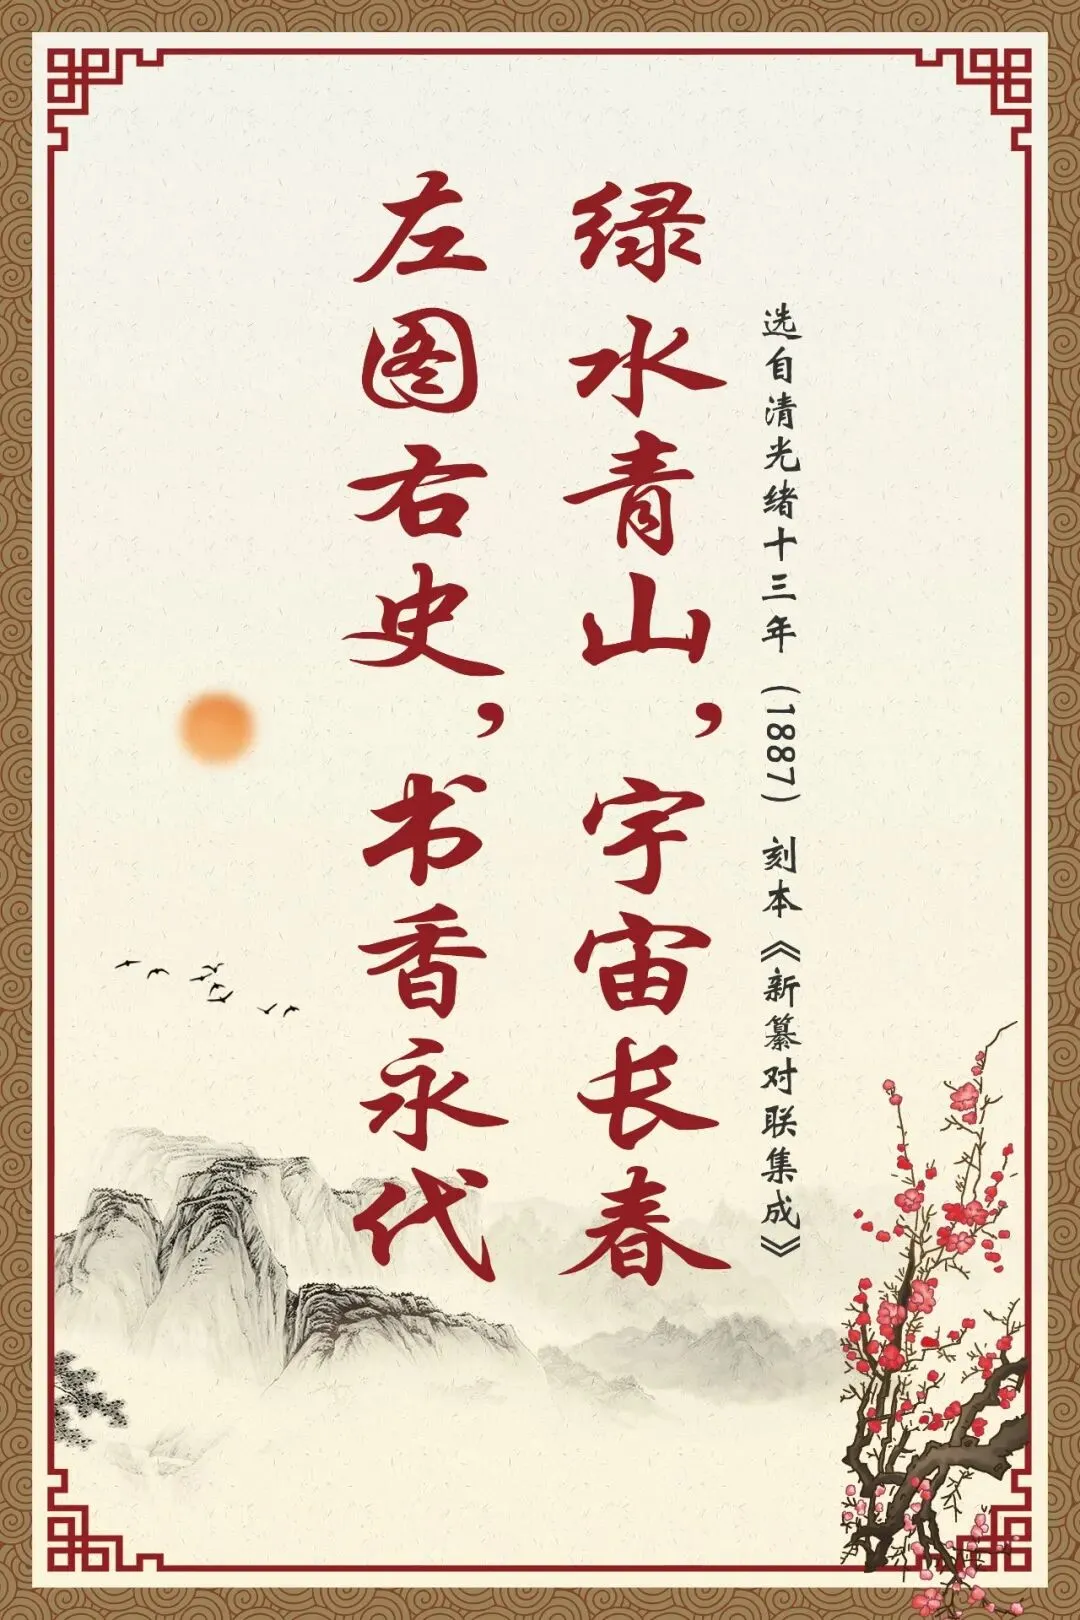 选自清光绪十三年（1887）刻本《新纂对联集成》
绿水青山，宇宙长春
左图右史，书香永代